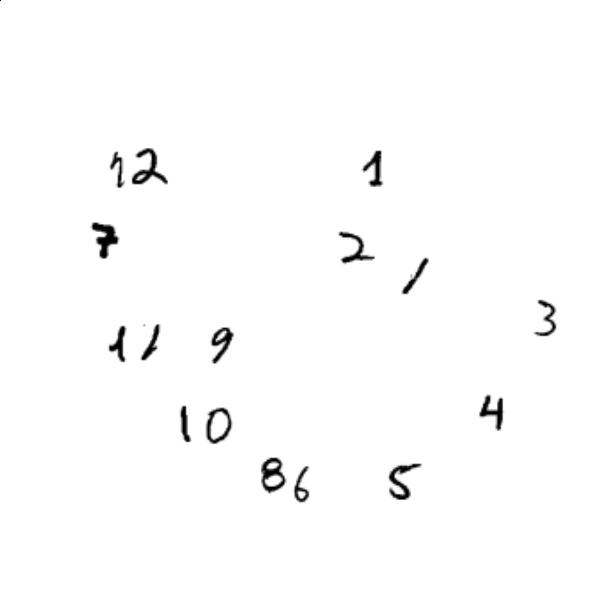 12 1
7 2 /
3
11 9
10 4
8 6 5